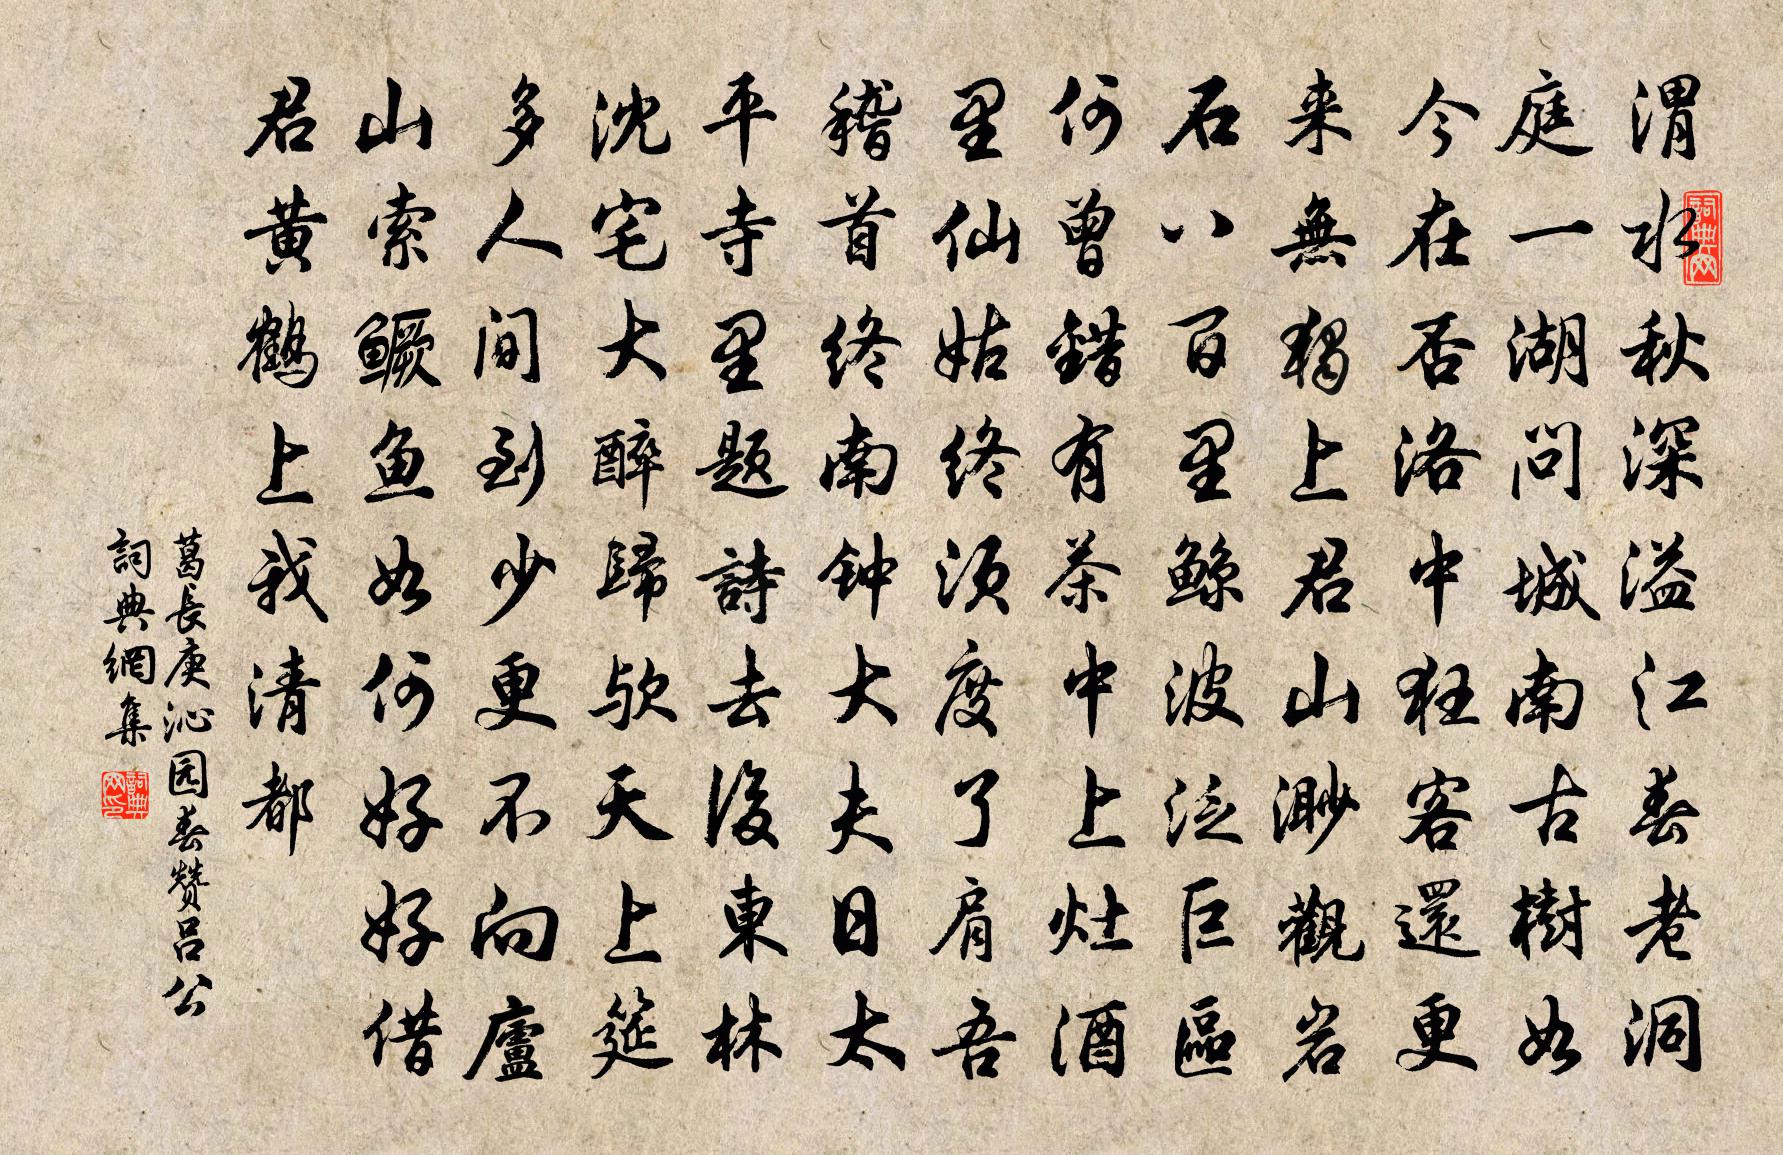 渭水秋深溢江春老洞
庭一湖问城南古樹如
今在否洛中狂客還更
来無獨上君山渺觀岩
石八百里鲸波泛巨區
何曾錯有茶中上灶酒
里仙姑终须度了肩吾
稽首终南钟大夫日太
平寺里题詩去後東林
沈宅大醉歸欤天上筵
多人间到少更不向廬
山索鳜鱼如何好好借
君黄鹤上我清都
葛長庚沁园春赞吕公
詞典網集
詞典网
詞典网印